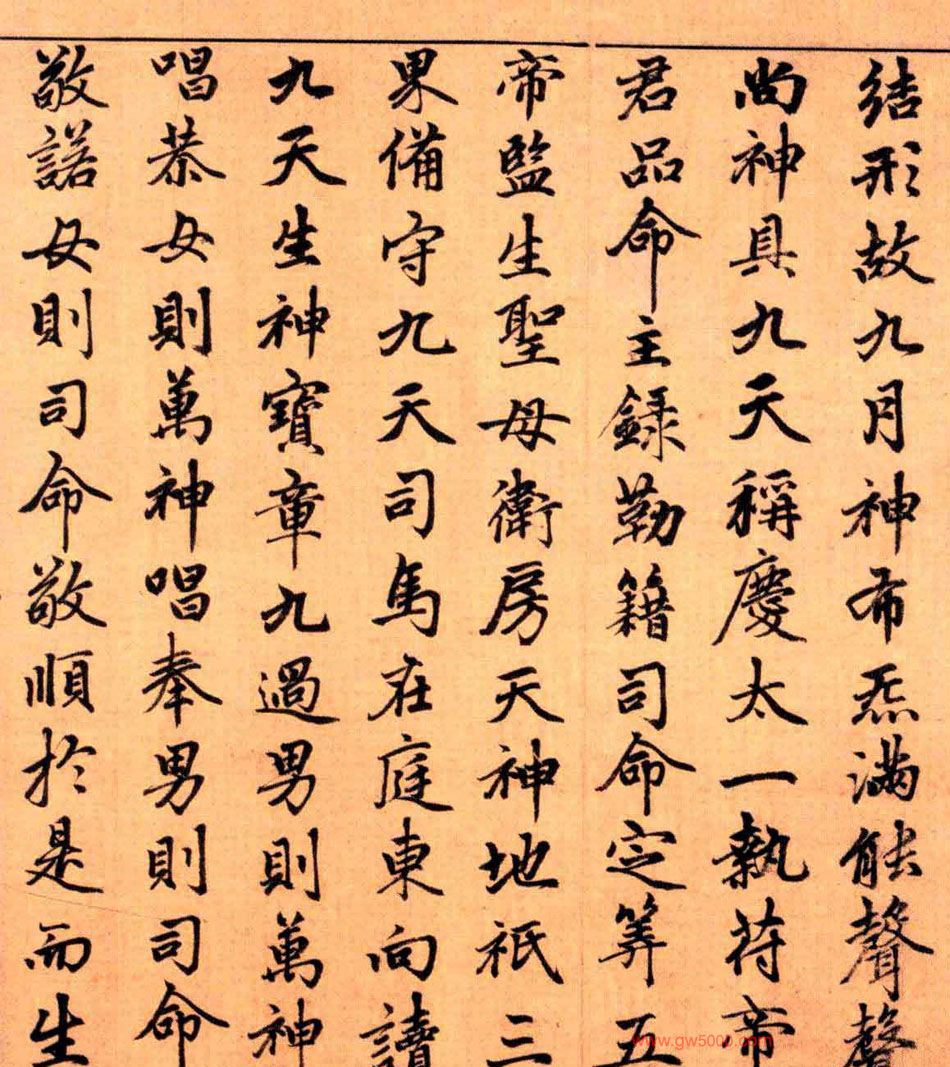 結形故九月神布炁滿能聲聲
尚神具九天稱慶太一執苻帝
君品命主録勒籍司命定筭五
帝監生聖母衛房天神地祇三
果備守九天司馬在庭東向讀
九天生神寶章九過男則萬神
唱恭女則萬神唱奉男則司命
敬諾女則司命敬順於是而生
www.gw5000.com